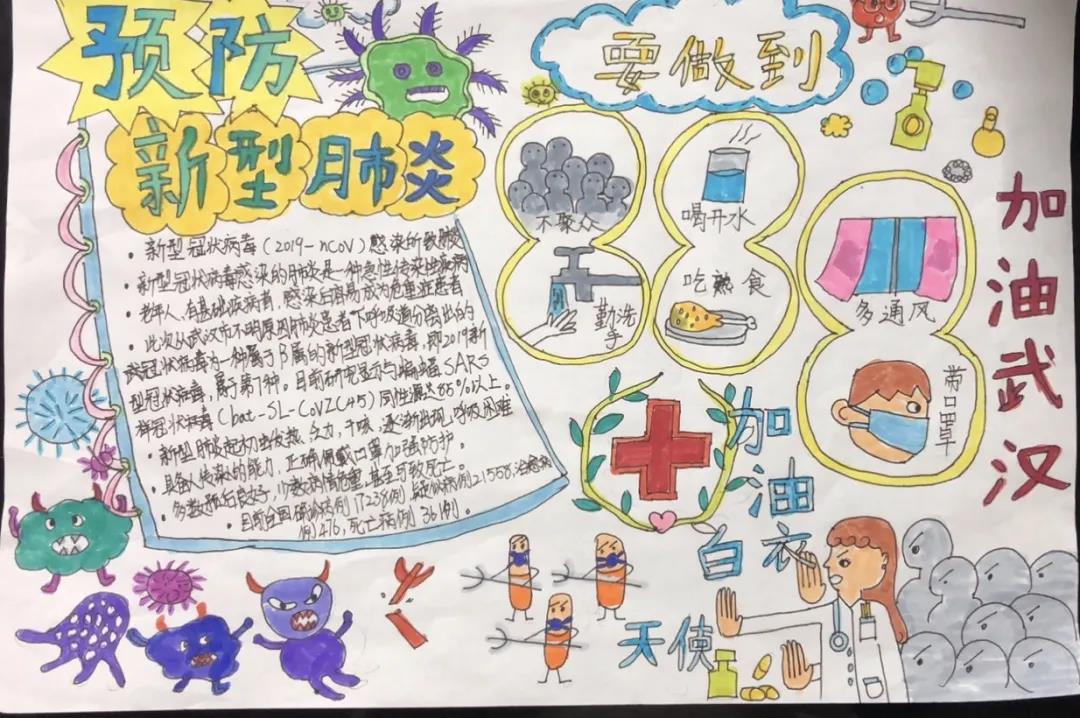 预防
新型肺炎
·新型冠状病毒(2019-nCoV)感染所致肺炎
·新型冠状病毒感染的肺炎是一种急性传染性疾病
·老年人、有基础疾病者,感染后容易成为危重症患者
·此次从武汉市不明原因肺炎患者下呼吸道分离出的
冠状病毒为一种属于β属的新型冠状病毒,即2019新
型冠状病毒,属于第7种。目前研究显示与蝙蝠SARS
样冠状病毒(bat-SL-CoVZC45)同性源达85%以上。
·新型肺炎起初出现发热,乏力,干咳,逐渐出现呼吸困难
具备人传染的能力,正确佩戴口罩加强防护。
·多数预后良好,少数病情危重,甚至可致死亡。
·目前全国确诊病例17238例,疑似病例21558,治愈病
例476,死亡病例361例。
要做到
不聚众
喝开水
勤洗手
吃熟食
多通风
带口罩
加油武汉
加油
白衣
天使